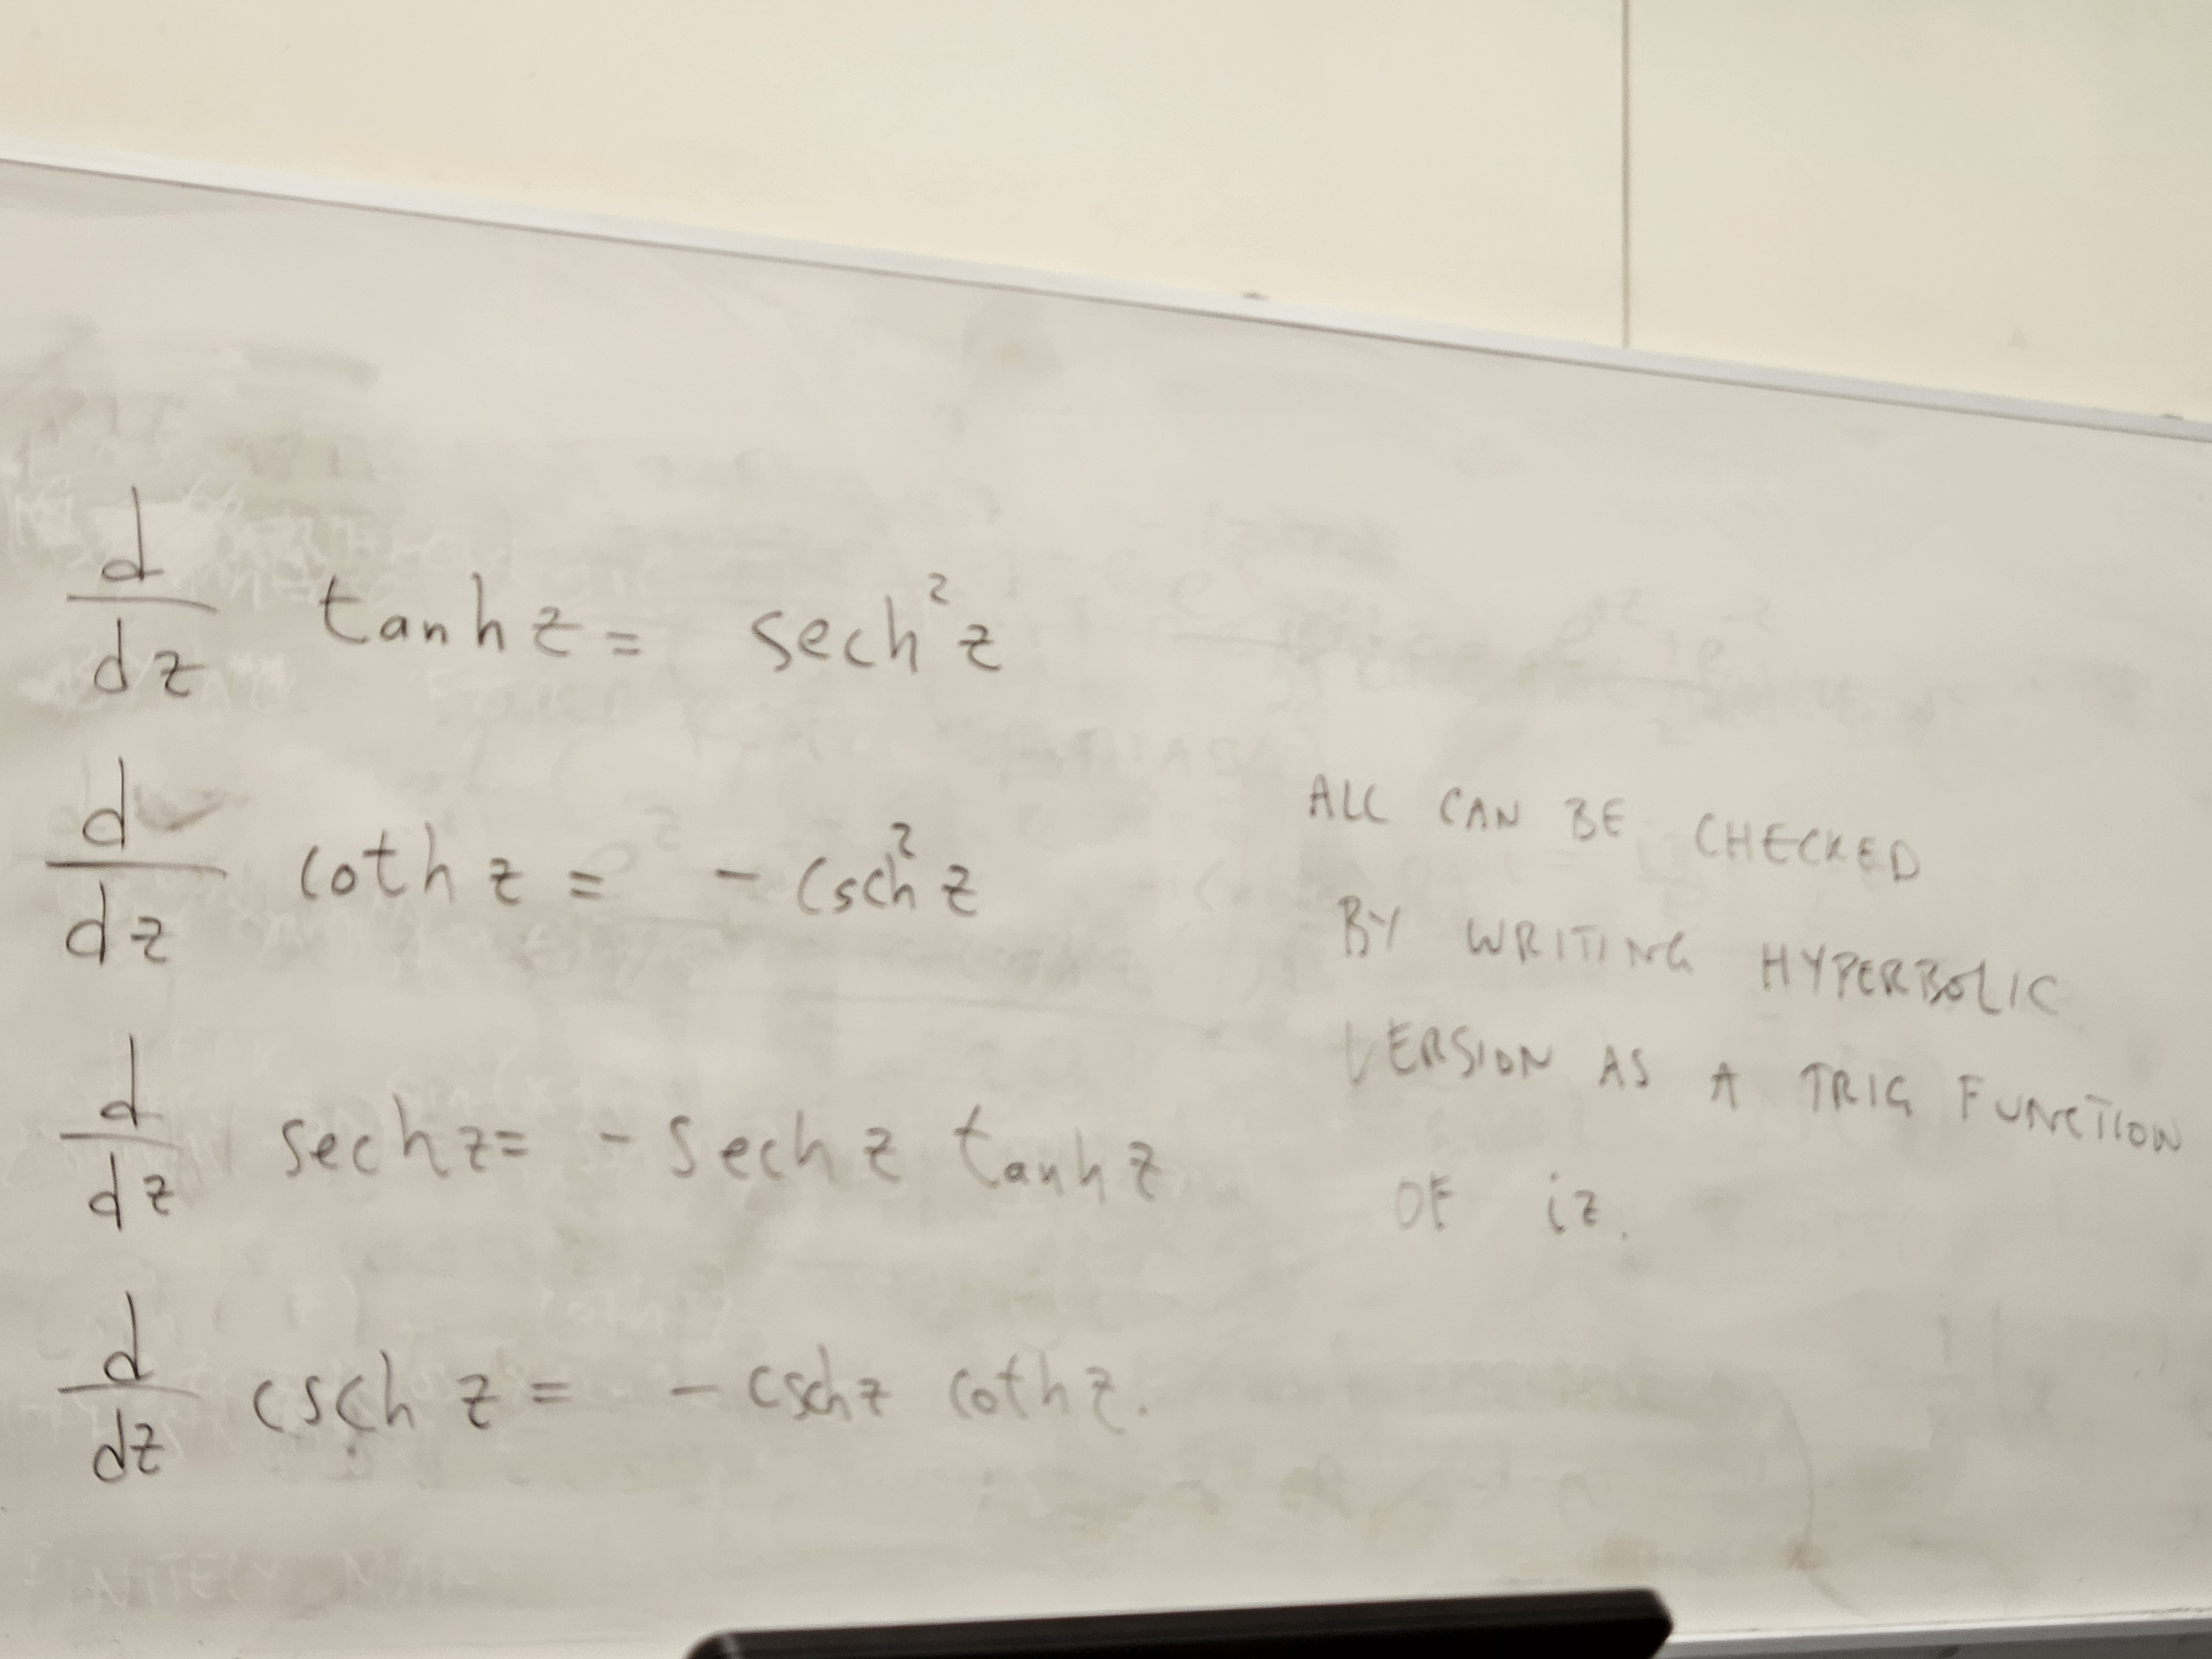 d/dz tanh z = sech² z
d/dz coth z = - csch² z
d/dz sech z = - sech z tanh z
d/dz csch z = - csch z coth z.
ALL CAN BE CHECKED
BY WRITING HYPERBOLIC
VERSION AS A TRIG FUNCTION
OF iz.